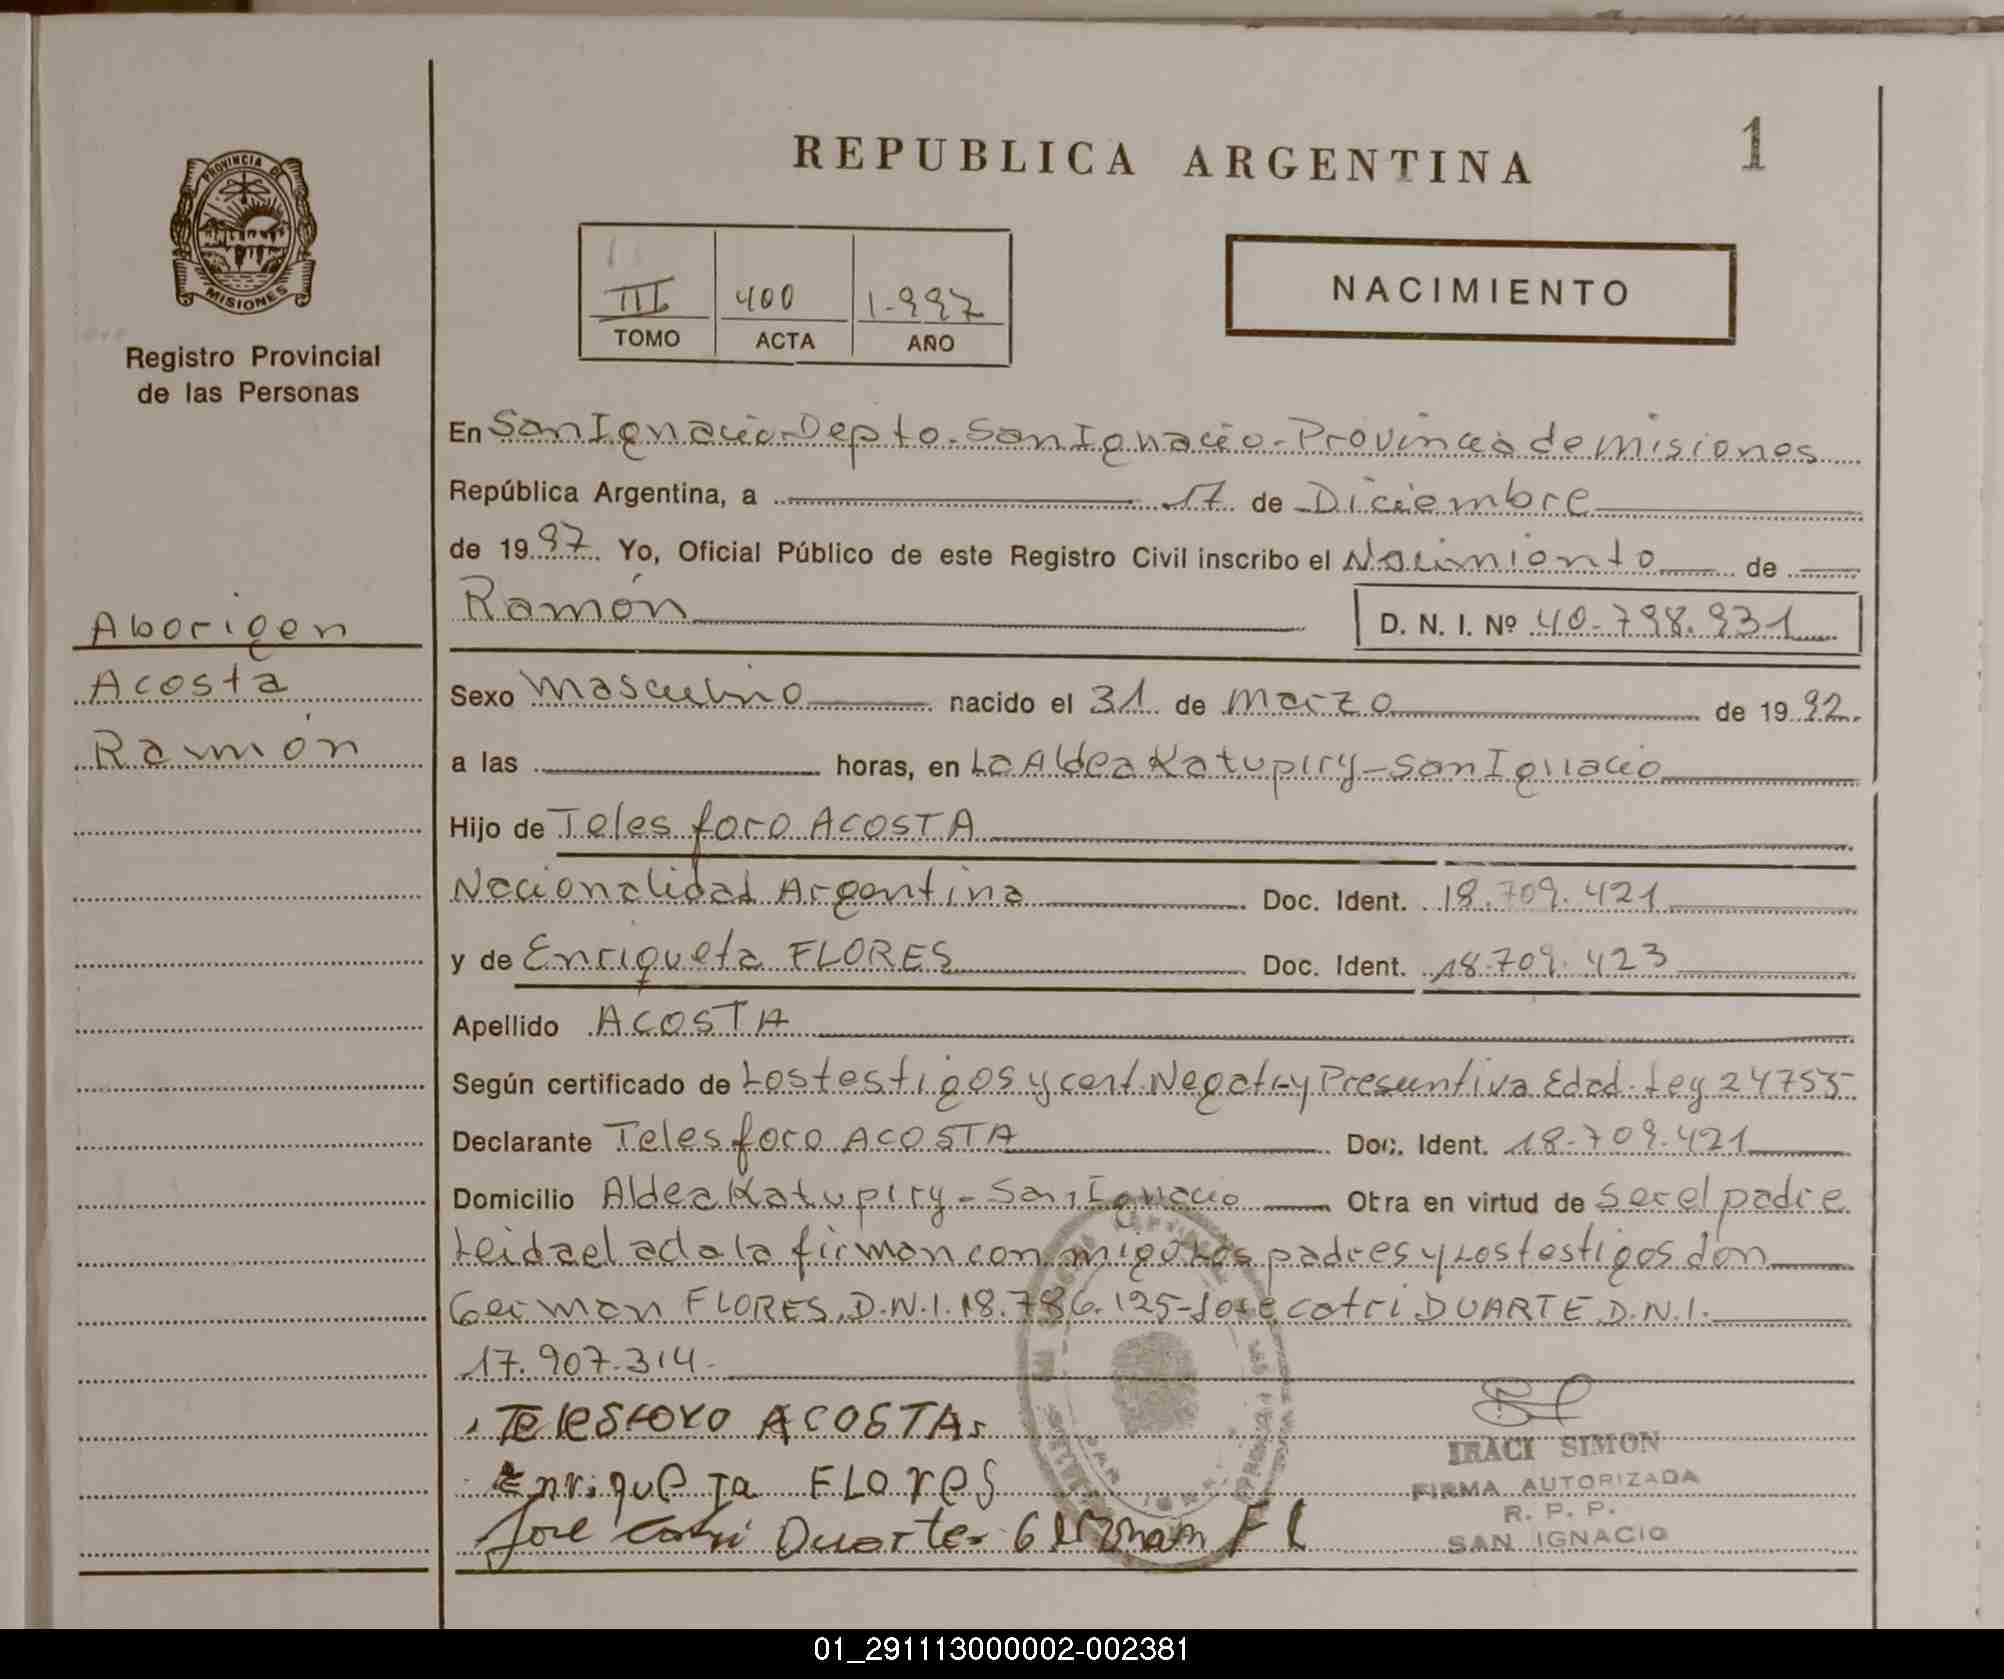 REPUBLICA ARGENTINA
1
PROVINCIA DE
MISIONES
Registro Provincial
de las Personas
III 400 1.997
TOMO ACTA AÑO
NACIMIENTO
En San Ignacio-Depto.San Ignacio-Provincia de misiones
República Argentina, a 17 de Diciembre
de 1997 Yo, Oficial Público de este Registro Civil inscribo el Nacimiento de
Ramón
D. N. I. Nº 40.798.931
Aborigen
Acosta
Ramón
Sexo masculino nacido el 31 de marzo de 1992.
a las horas, en La Aldea Katupiry-San Ignacio
Hijo de Telesforo ACOSTA
Nacionalidad Argentina Doc. Ident. 18.709.421
y de Enriqueta FLORES Doc. Ident. 18.709.423
Apellido ACOSTA
Según certificado de Los testigos y cert. Negat-y Presuntiva Edad. Ley 24755
Declarante Telesforo ACOSTA Doc. Ident. 18.709.421
Domicilio Aldea Katupiry-San Ignacio Otra en virtud de ser el padre
Leida el acta la firman con migo Los padres y Los testigos don
German FLORES, D.N.I. 18.786.125-Jose catri DUARTE D.N.I.
17.907.314.
Telesforo ACOSTA
Enriqueta FLores
Jose Catri Duarte German FL
IRACI SIMON
FIRMA AUTORIZADA
R. P. P.
SAN IGNACIO
01_291113000002-002381